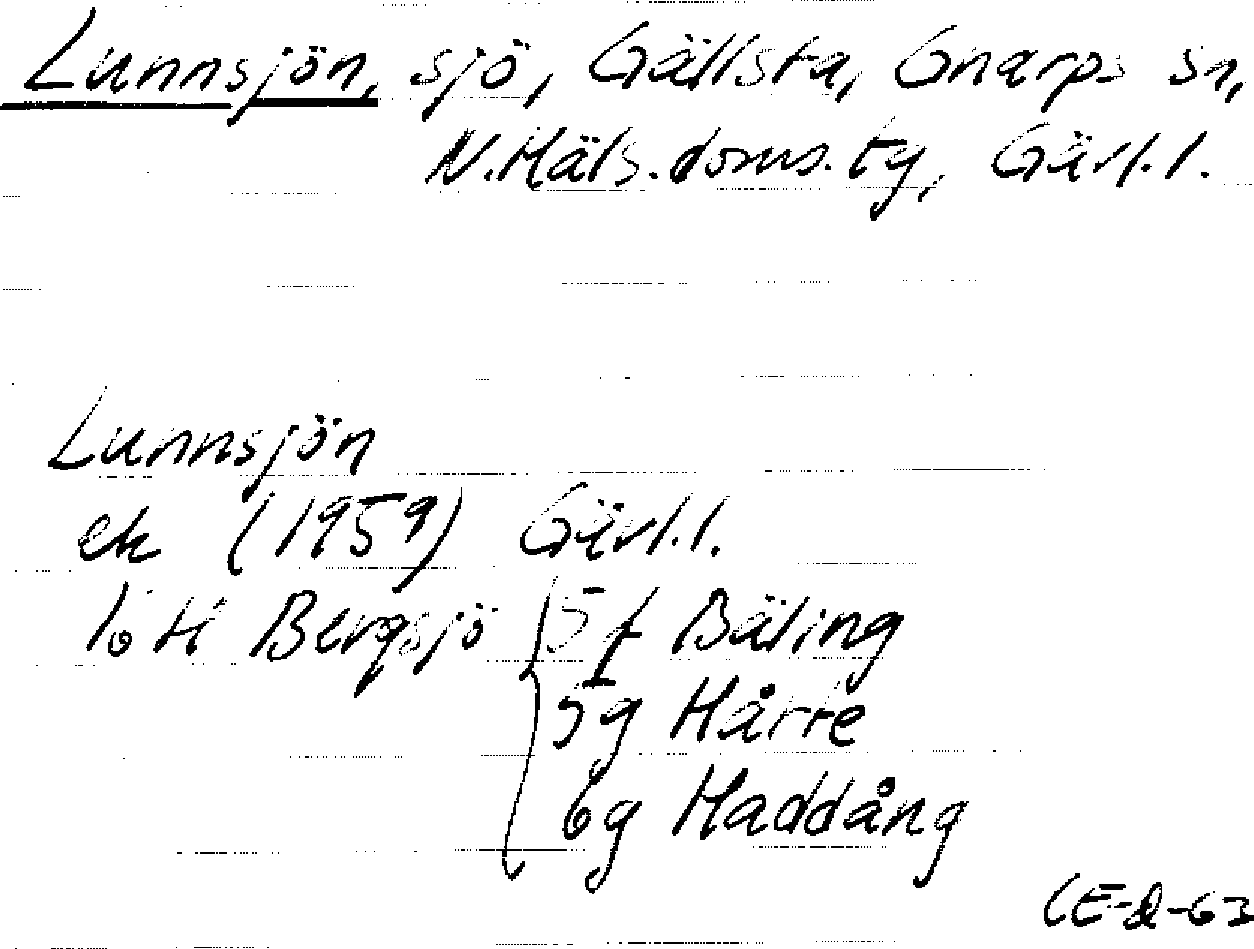 Lunnsjön, sjö, Gällsta, Gnarps sn,
N.Häls.doms.tg, Gävl.l.
Lunnsjön
ek (1959) Gävl.l.
16H Bergsjö 5f Bäling
5g Hårte
6g Haddång